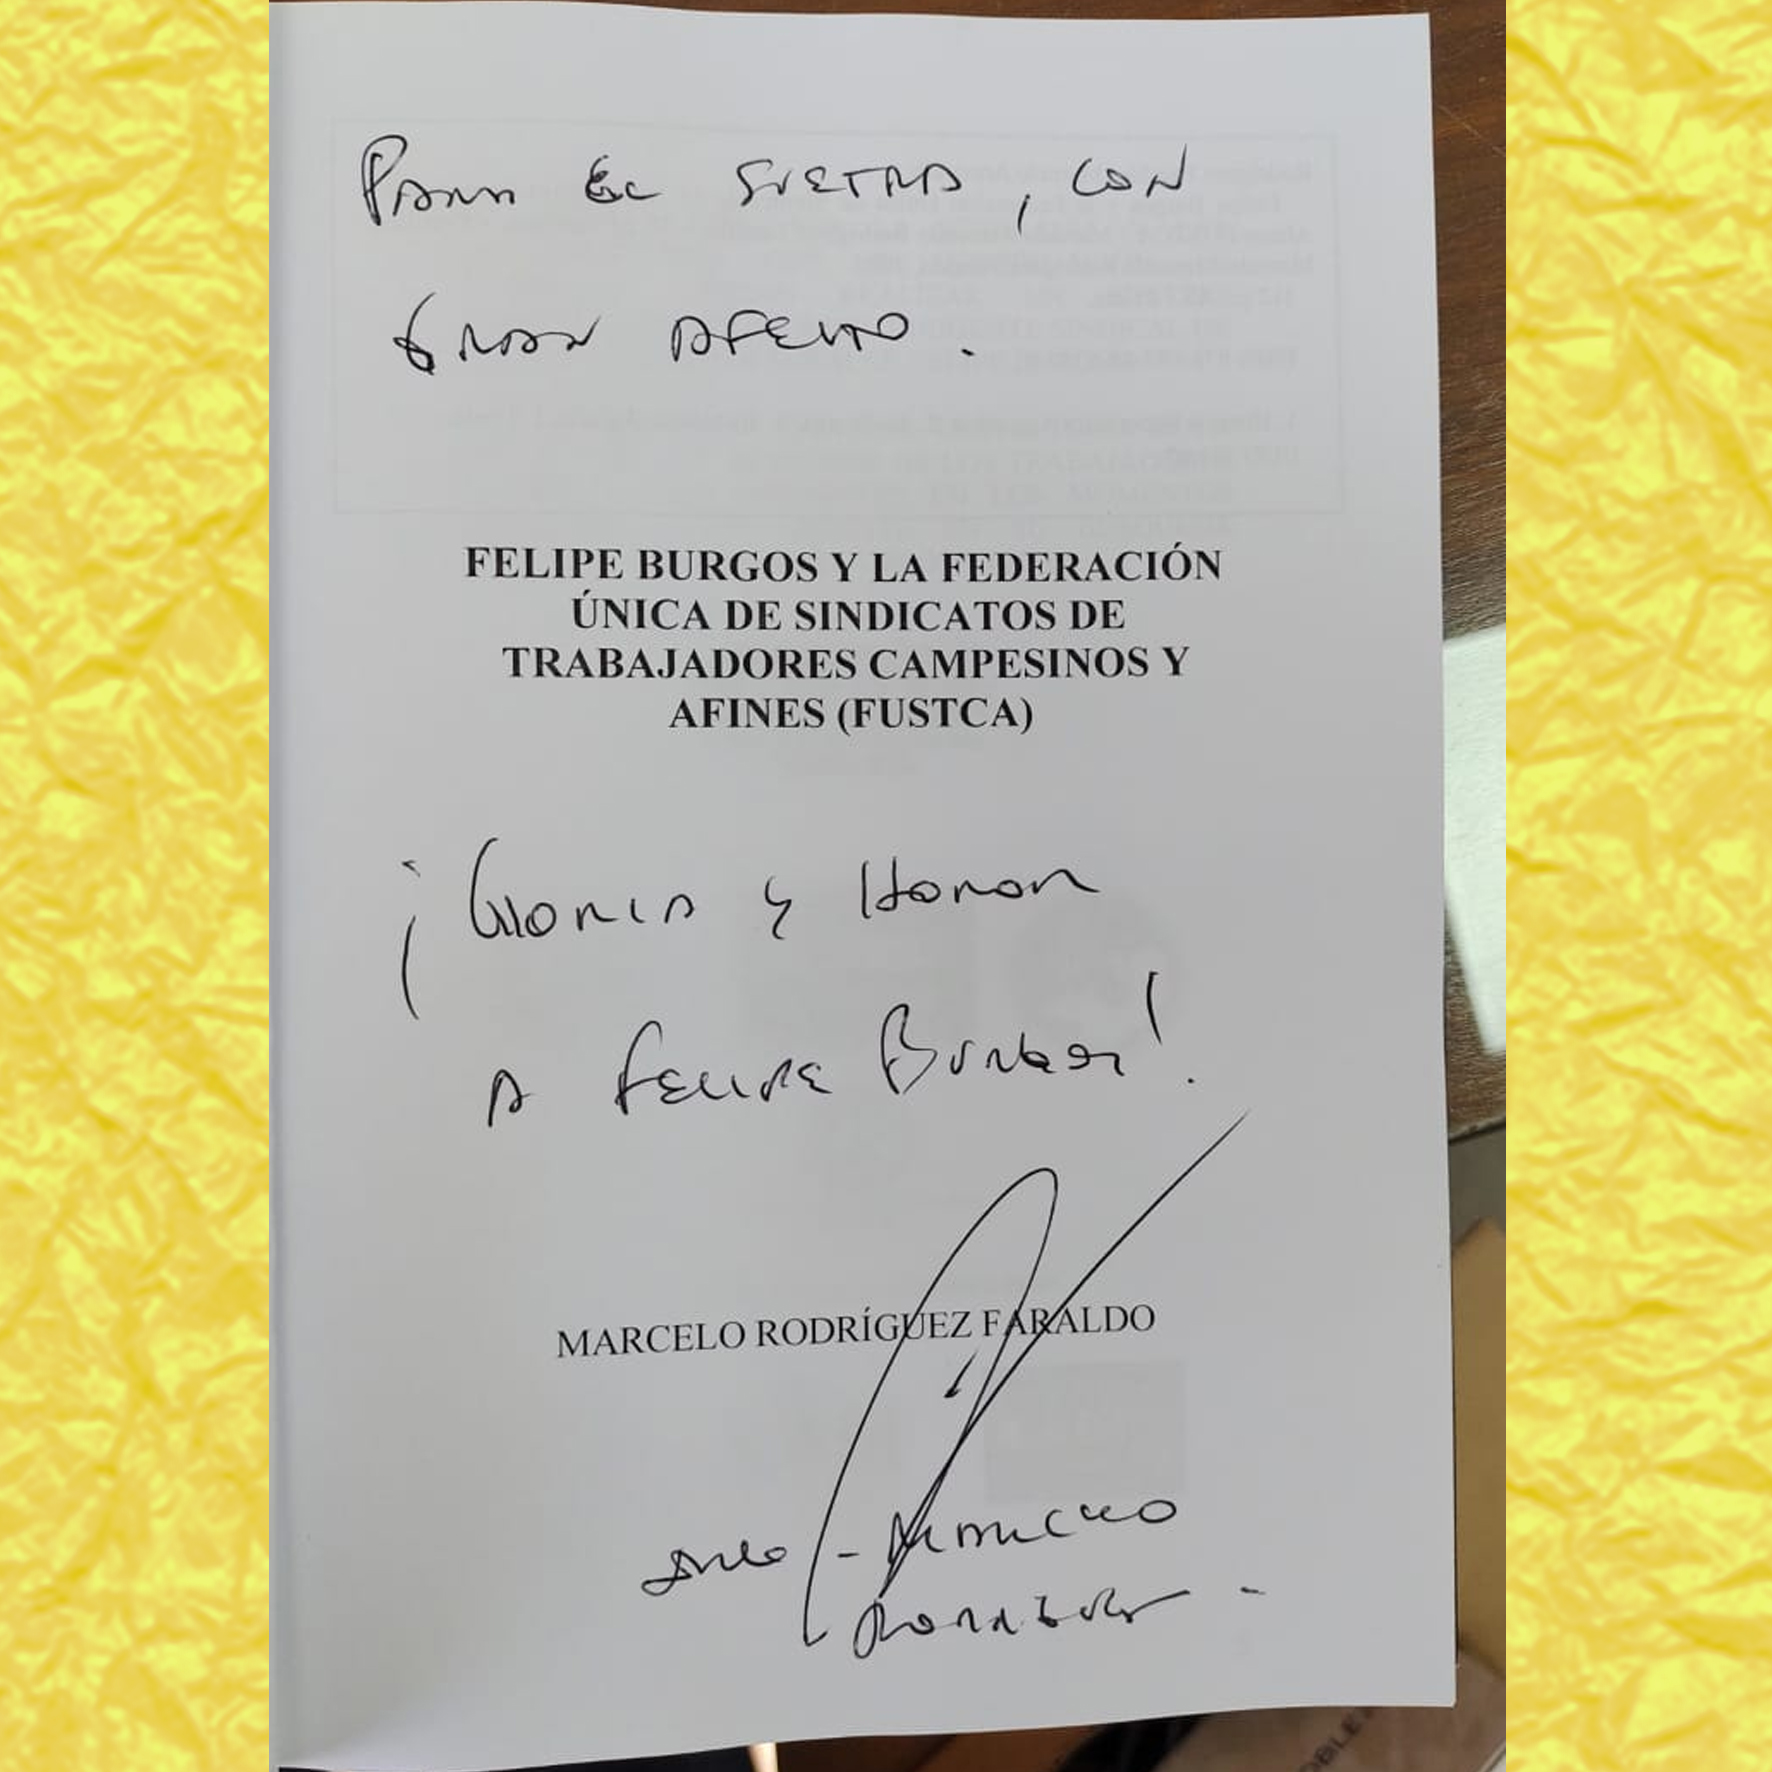 PARA EL SUETRA, CON
GRAN AFECTO.
FELIPE BURGOS Y LA FEDERACIÓN
ÚNICA DE SINDICATOS DE
TRABAJADORES CAMPESINOS Y
AFINES (FUSTCA)
¡GLORIA y HONOR
A FELIPE BURGOS!
MARCELO RODRÍGUEZ FARALDO
MARCELO
RODRÍGUEZ